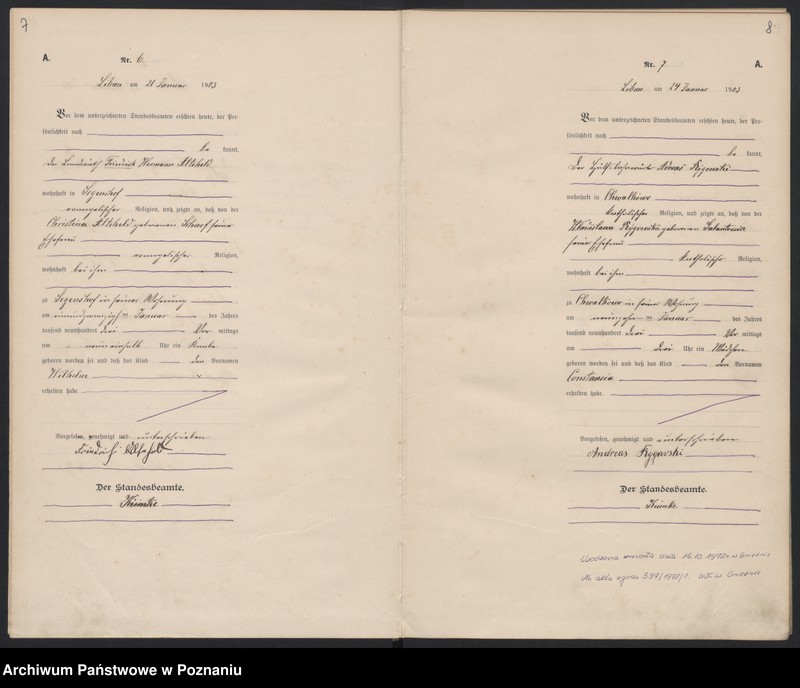 7
A.
Nr. 6
Libau am 21 Januar 1903
Vor dem unterzeichneten Standesbeamten erschien heute, der Per-
sönlichkeit nach
be kannt,
der Landwirth Friedrich Hermann
wohnhaft in Segenshof
evangelischer Religion, und zeigte an, daß von der
Christina geborenen Scharf seiner
Ehefrau
evangelischer Religion,
wohnhaft bei ihm
zu Segenshof in seiner Wohnung
am einundzwanzigsten Januar des Jahres
tausend neunhundert drei Vor mittags
um neun einhalb Uhr ein Knabe
geboren worden sei und daß das Kind den Vornamen
Wilhelm
erhalten habe.
Vorgelesen, genehmigt und unterschrieben
Friedrich
Der Standesbeamte.
8
Nr. 7
A.
Libau am 24 Januar 1903
Vor dem unterzeichneten Standesbeamten erschien heute, der Per-
sönlichkeit nach
be kannt,
der
wohnhaft in Chwalkowo
katholischer Religion, und zeigte an, daß von der
geborenen
seiner Ehefrau
katholischer Religion,
wohnhaft bei ihm
zu Chwalkowo in seiner Wohnung
am neunzehnten Januar des Jahres
tausend neunhundert drei Vor mittags
um drei Uhr ein Mädchen
geboren worden sei und daß das Kind den Vornamen
Constansia
erhalten habe.
Vorgelesen, genehmigt und unterschrieben
Andreas
Der Standesbeamte.
zmarła dnia 16.10.1972 w Gnieźnie
Nr aktu zgonu 597/1972/1. USC w Gnieźnie
Archiwum Państwowe w Poznaniu